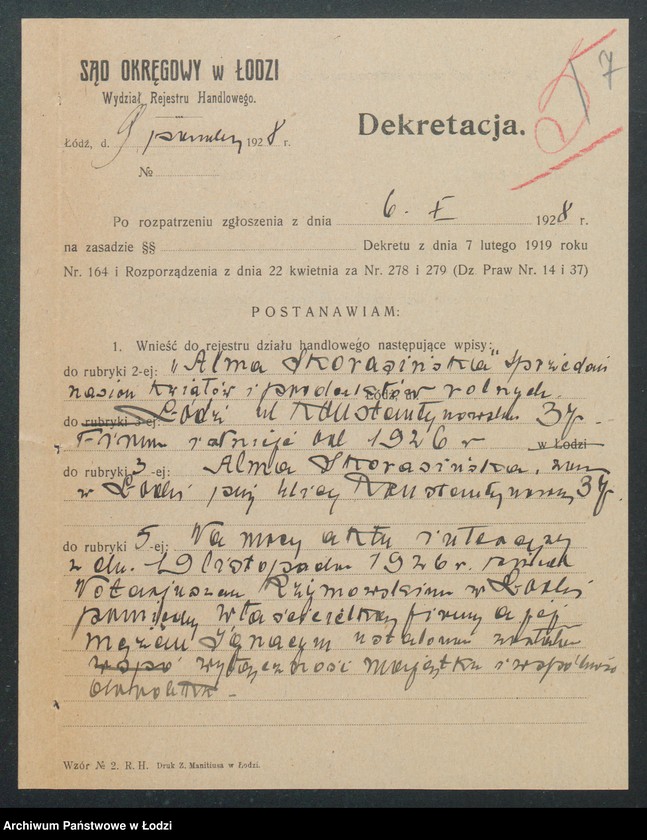 7
SĄD OKRĘGOWY w ŁODZI
Wydział Rejestru Handlowego.
Dekretacja.
Łódź, d. 9 1928 r.
№
Po rozpatrzeniu zgłoszenia z dnia 6. X 1928 r.
na zasadzie §§ Dekretu z dnia 7 lutego 1919 roku
Nr. 164 i Rozporządzenia z dnia 22 kwietnia za Nr. 278 i 279 (Dz. Praw Nr. 14 i 37)
POSTANAWIAM:
1. Wnieść do rejestru działu handlowego następujące wpisy:
do rubryki 2-ej: "Alma Skorasińska" Sprzedaż
nasion kwiatów i produktów rolnych
do rubryki 3-ej: Łodzi ul Konstantynowska 37.
Firma istnieje od 1926 r w Łodzi
do rubryki 3-ej: Alma Skorasińska, zam
w Łodzi przy ulicy Konstantynowskiej 37.
do rubryki 5-ej: Na mocy aktu intercyzy
z dn. 19 listopada 1926 r.
Notarjuszem Rzymowskim w Łodzi
pomiędzy właścicielką firmy a jej
mężem Ignacym ustalona została
wspó wyłączność majątku i wspólność
dorobku.
Wzór № 2. R. H. Druk Z. Manitiusa w Łodzi.
Archiwum Państwowe w Łodzi